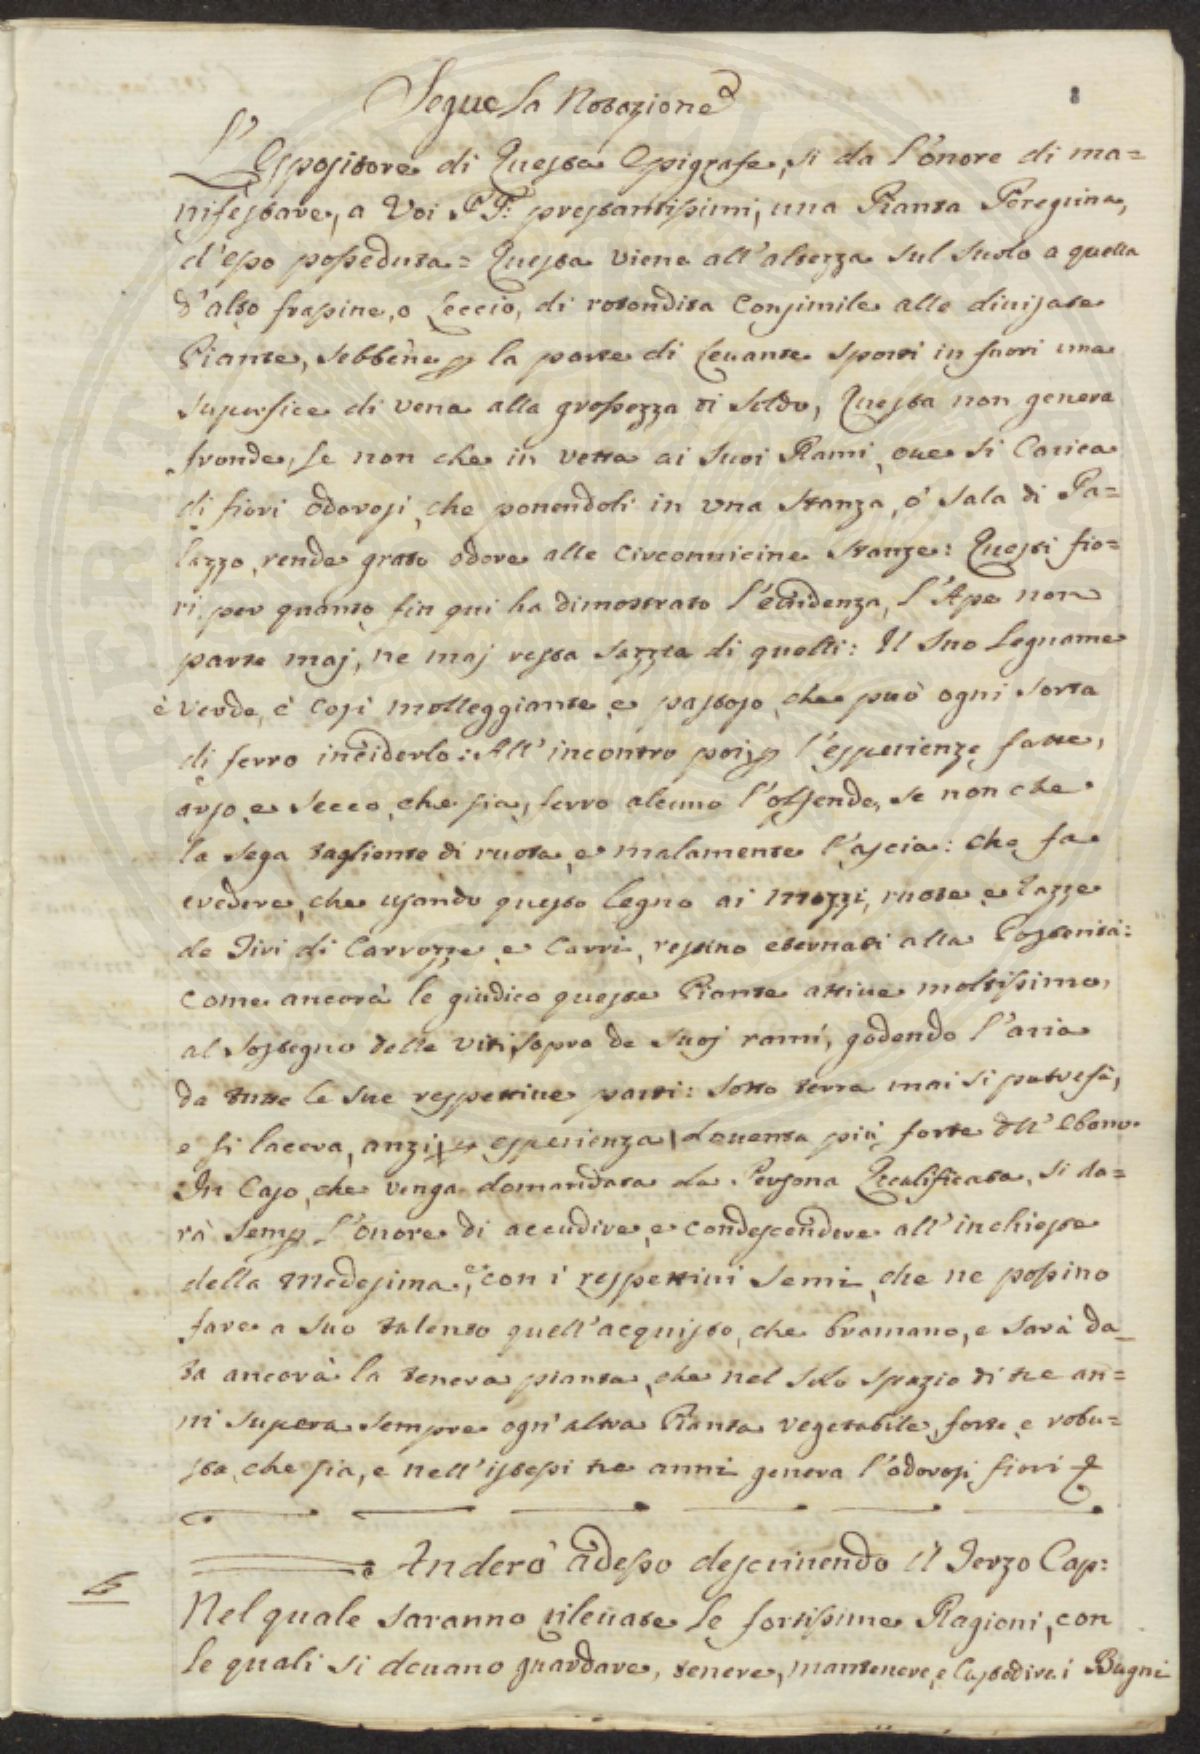 Segue la Notazione
8
L'Espositore di Questa Epigrafe, si da l'onore di ma=
nifestare, a Voi PP: prestantissimi, una Pianta Peregrina,
d'esso posseduta = Questa viene all'altezza sul suolo a quella
d'alto frassine, o Leccio, di rotondità consimile alle divisate
Piante, sebbene p la parte di Levante sporti in fuori una
superfice di vena alla grossezza di soldo, Questa non genera
fronde, se non che in vetta ai suoi Rami, ove si Carica
di fiori odorosi, che ponendoli in una stanza, ó sala di Pa=
lazzo, rende grato odore alle circonvicine stanze: Questi fio=
ri, per quanto fin qui ha dimostrato l'evidenza, l'Ape non
parte maj, ne maj resta sazzia di quelli: Il Suo Legname
è verde, è così molleggiante, e pastoso, che può ogni sorta
di ferro inciderlo: All'incontro poi, p l'esperienze fatte,
arso, e secco, che sia, ferro alcuno l'offende, se non che
la sega tagliente di ruota, e malamente l'ascia: che fa
vedere, che usando questo legno ai mozzi, ruote, e Tazze
de Tiri di Carrozze, e Carri, restino eternati alla Posterità:
come ancorà le giudico queste Piante attive moltissimo,
al sostegno delle viti, sopra de suoj rami, godendo l'aria
da tutte le sue respettive parti: sotto terra mai si putrefà,
e si lacera, anzi, p esperienza, doventa più forte dll'ebano.
In Caso, che venga domandata da Persona Qualificata, si da=
rà semp l'onore di accudire, e condescendere all'inchieste
della Medesima, con i respettivi semi, che ne possino
fare a suo talento quell'acquisto, che bramano, e sarà da_
ta ancorà la tenera pianta, che nel solo spazio di tre an=
ni supera sempre ogn'altra Pianta vegetabile, forte, e robu=
sta, che sia, e nell'istessi tre anni genera l'odorosi fiori
Anderò adesso descrivendo il Terzo Cap:
Nel quale saranno rilevate le fortissime Ragioni, con
le quali si devano guardare, tenere, mantenere, e Custodire i Bugni